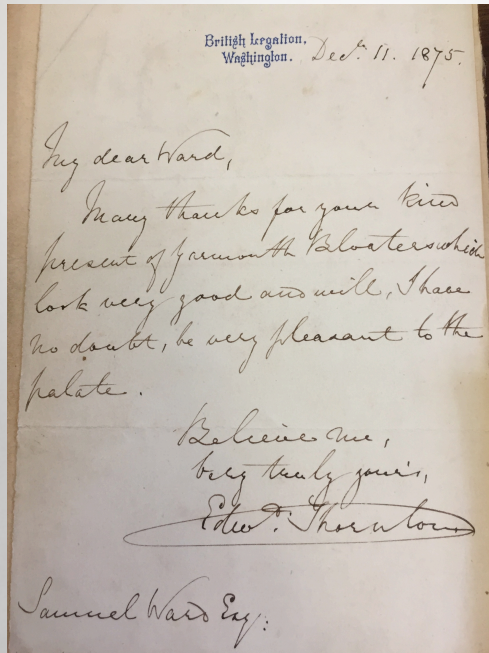 British Legation,
Washington.
Decr. 11. 1875.
My dear Ward,
Many thanks for your kind
present of Yarmouth Bloaters which
look very good and will, I have
no doubt, be very pleasant to the
palate.
Believe me,
very truly yours,
Edwd. Thornton
Samuel Ward Esq: